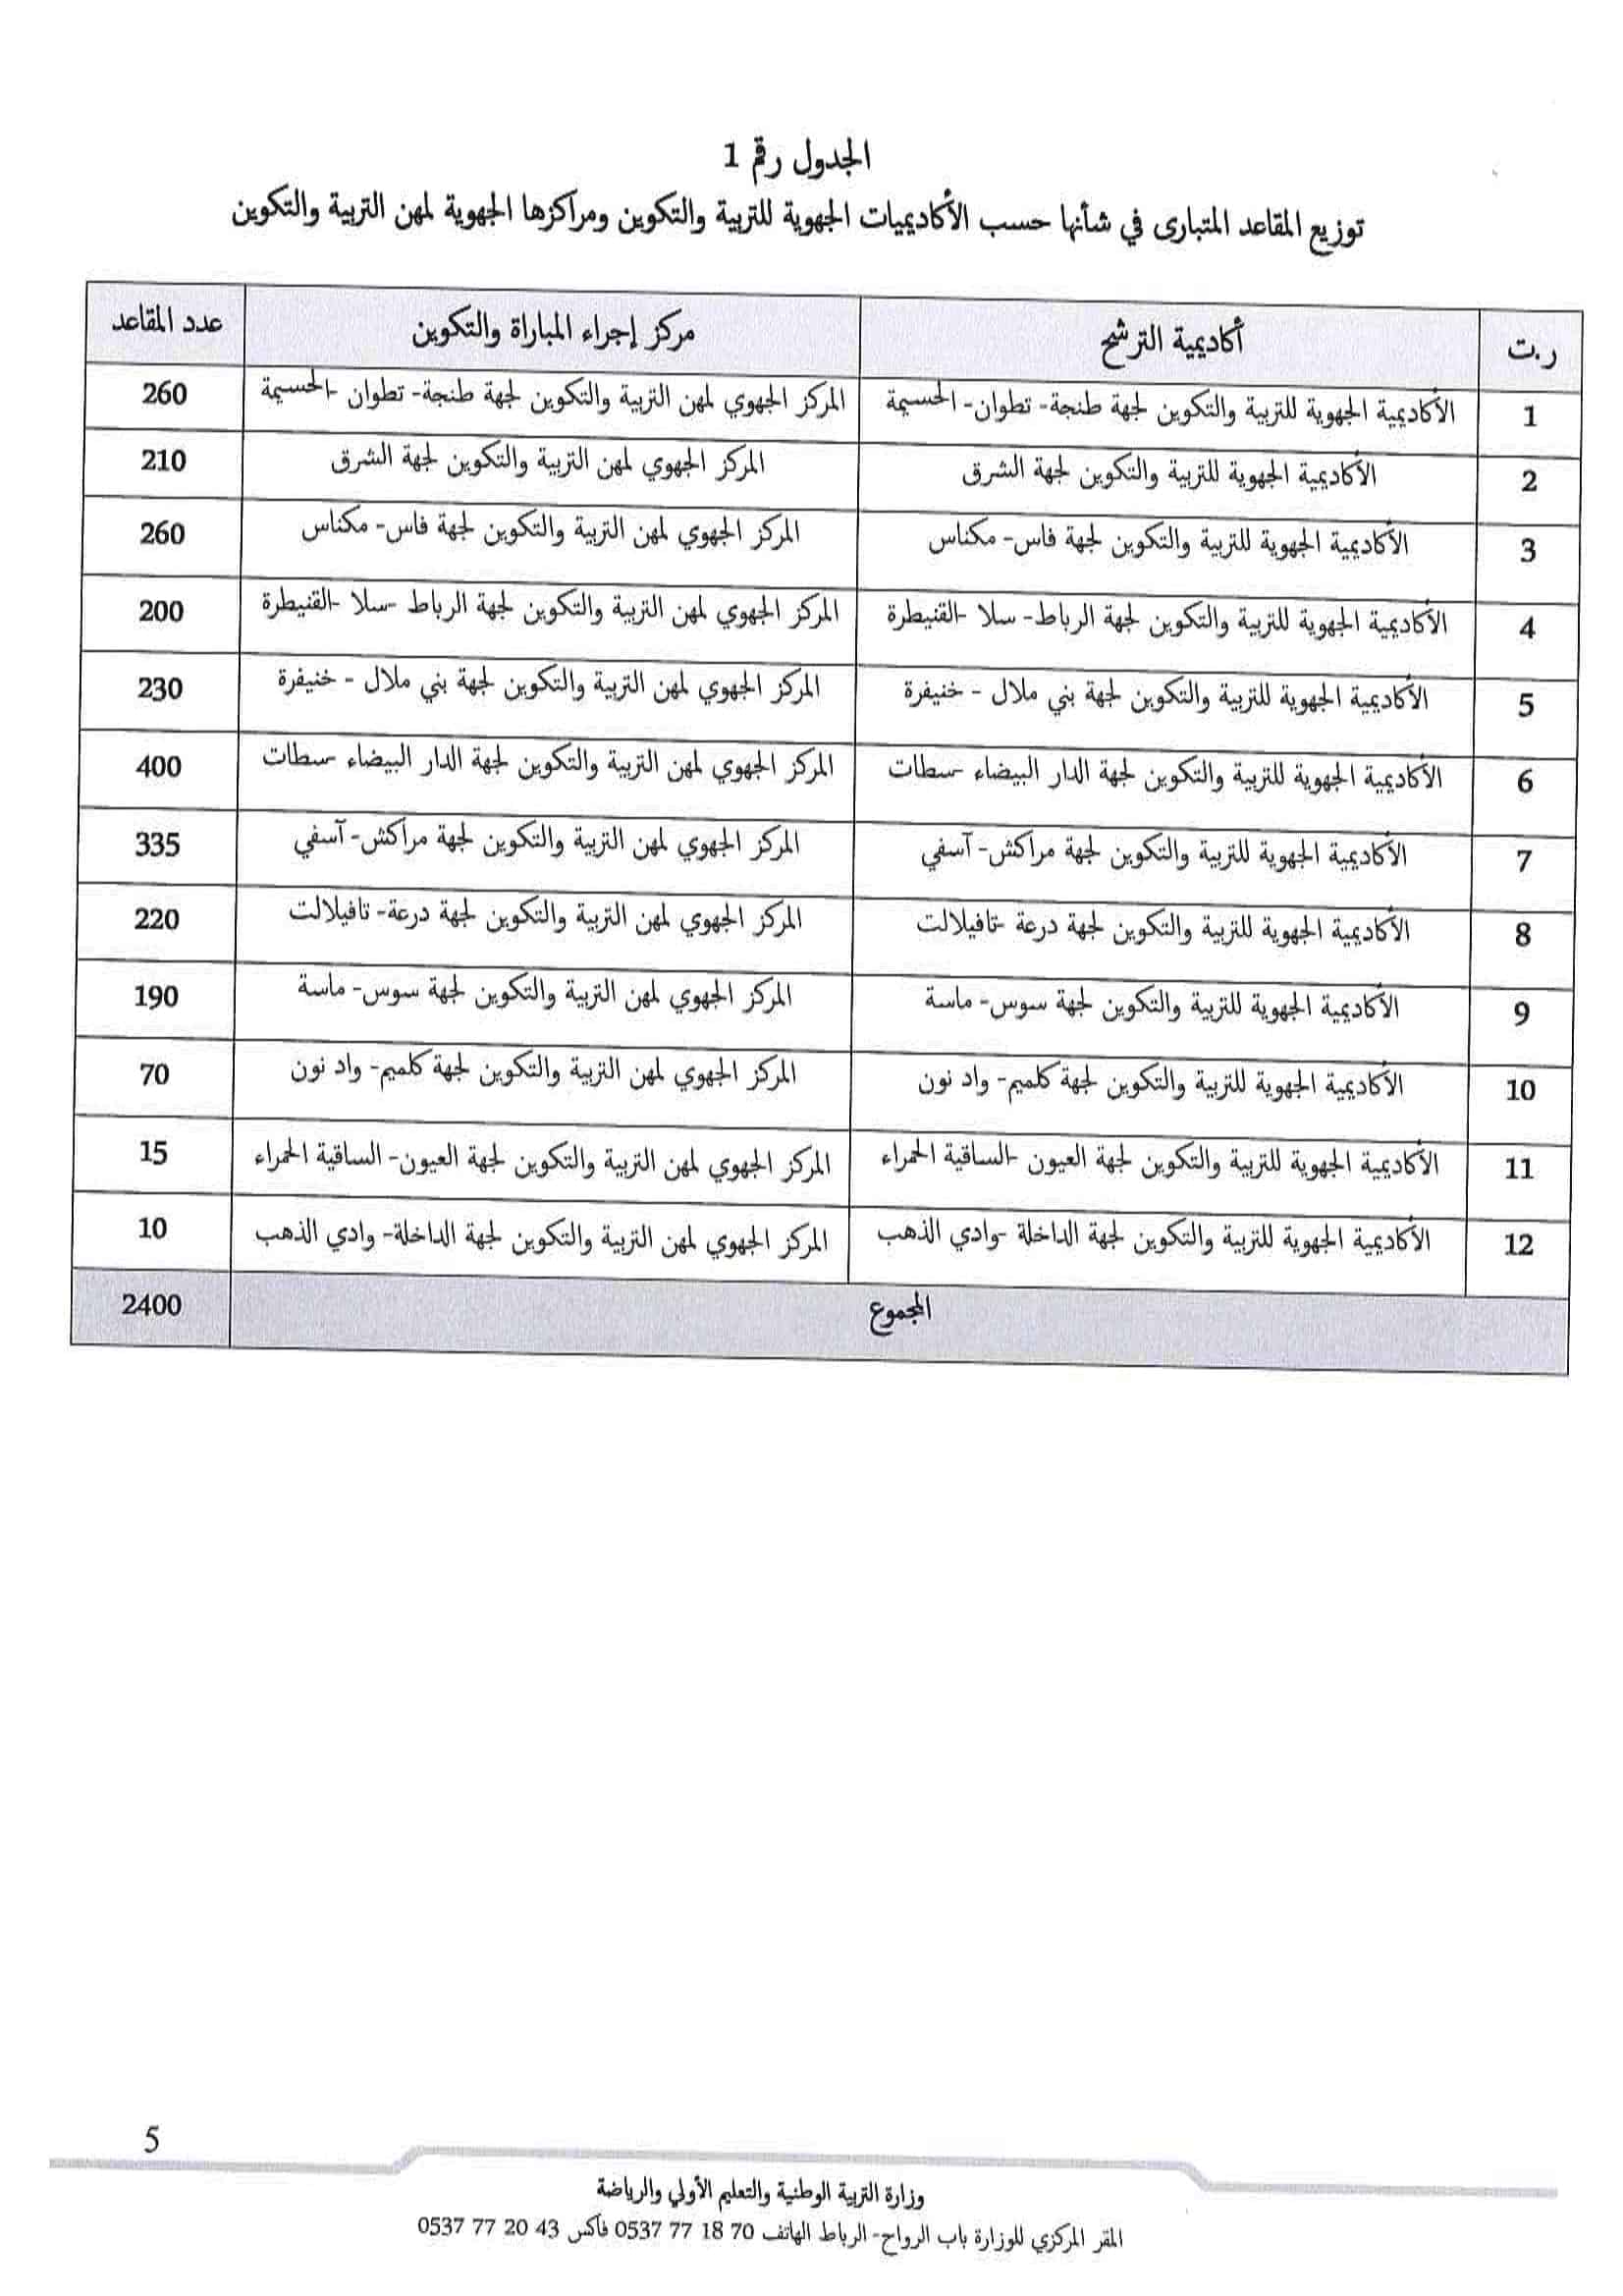 الجدول رقم 1
توزيع المقاعد المتبارى في شأنها حسب الأكاديميات الجهوية للتربية والتكوين ومراكزها الجهوية لمهن التربية والتكوين
ر.ت أكاديمية الترشح مركز إجراء المباراة والتكوين عدد المقاعد
1 الأكاديمية الجهوية للتربية والتكوين لجهة طنجة- تطوان- الحسيمة المركز الجهوي لمهن التربية والتكوين لجهة طنجة- تطوان -الحسيمة 260
2 الأكاديمية الجهوية للتربية والتكوين لجهة الشرق المركز الجهوي لمهن التربية والتكوين لجهة الشرق 210
3 الأكاديمية الجهوية للتربية والتكوين لجهة فاس- مكناس المركز الجهوي لمهن التربية والتكوين لجهة فاس- مكناس 260
4 الأكاديمية الجهوية للتربية والتكوين لجهة الرباط- سلا -القنيطرة المركز الجهوي لمهن التربية والتكوين لجهة الرباط -سلا -القنيطرة 200
5 الأكاديمية الجهوية للتربية والتكوين لجهة بني ملال - خنيفرة المركز الجهوي لمهن التربية والتكوين لجهة بني ملال - خنيفرة 230
6 الأكاديمية الجهوية للتربية والتكوين لجهة الدار البيضاء -سطات المركز الجهوي لمهن التربية والتكوين لجهة الدار البيضاء -سطات 400
7 الأكاديمية الجهوية للتربية والتكوين لجهة مراكش- آسفي المركز الجهوي لمهن التربية والتكوين لجهة مراكش- آسفي 335
8 الأكاديمية الجهوية للتربية والتكوين لجهة درعة -تافيلالت المركز الجهوي لمهن التربية والتكوين لجهة درعة- تافيلالت 220
9 الأكاديمية الجهوية للتربية والتكوين لجهة سوس- ماسة المركز الجهوي لمهن التربية والتكوين لجهة سوس- ماسة 190
10 الأكاديمية الجهوية للتربية والتكوين لجهة كلميم- واد نون المركز الجهوي لمهن التربية والتكوين لجهة كلميم- واد نون 70
11 الأكاديمية الجهوية للتربية والتكوين لجهة العيون -الساقية الحمراء المركز الجهوي لمهن التربية والتكوين لجهة العيون- الساقية الحمراء 15
12 الأكاديمية الجهوية للتربية والتكوين لجهة الداخلة -وادي الذهب المركز الجهوي لمهن التربية والتكوين لجهة الداخلة- وادي الذهب 10
المجموع 2400
5
وزارة التربية الوطنية والتعليم الأولي والرياضة
المقر المركزي للوزارة باب الرواح- الرباط الهاتف 70 18 77 0537 فاكس 43 20 77 0537